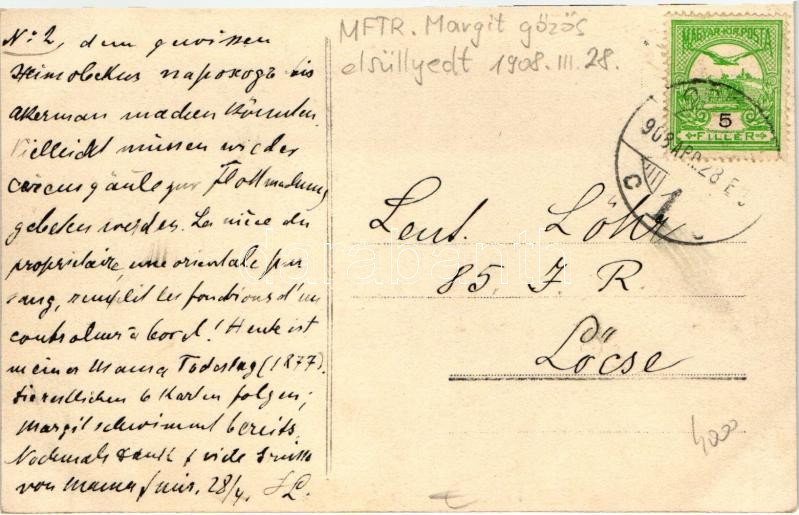 MFTR. Margit gőzös
elsüllyedt 1908. III. 28.
MAGYAR KIR. POSTA
5
FILLÉR
908 APR. 28
No 2, dem gewissen
bis
akerman machen könnten.
Vielleicht müssen wieder
zur Flottmachung
gebeten werden. La nièce du
propriétaire, une orientale pur
sang, remplit les fonctions d'un
à bord! Heute ist
meiner Mama Todestag (1877).
Die restlichen 6 Karten folgen;
Margit schwimmt bereits
Nochmals Dank & viele Grüsse
von Mama & mir. 28/4. SL.
Leut. Löhr
85. J. R.
Löcse
4000